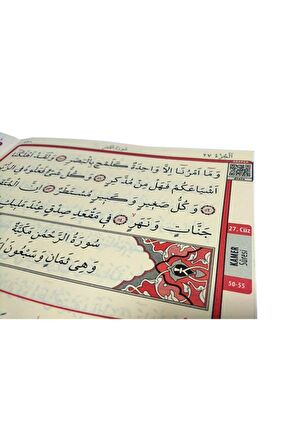 سُورَةُ الْقَمَرِ
اَلْجُزْءُ ٢٧
وَمَٓا اَمْرُنَٓا اِلَّا وَاحِدَةٌ كَلَمْحٍ بِالْبَصَرِ ﴿٥٠﴾ وَلَقَدْ اَهْلَكْنَٓا
اَشْيَاعَكُمْ فَهَلْ مِنْ مُدَّكِرٍ ﴿٥١﴾ وَكُلُّ شَيْءٍ فَعَلُوهُ فِي
﴿٥٢﴾ وَكُلُّ صَغِيرٍ وَكَبِيرٍ مُسْتَطَرٌ ﴿٥٣﴾ اِنَّ الْمُتَّقِينَ
جَنَّاتٍ وَنَهَرٍ ﴿٥٤﴾ فِي مَقْعَدِ صِدْقٍ عِنْدَ مَلِيكٍ
سُورَةُ الرَّحْمٰنِ مَكِّيَّةٌ
وَهِيَ ثَمَانٍ وَسَبْعُونَ
27. Cüz
KAMER
Sûresi
50-55